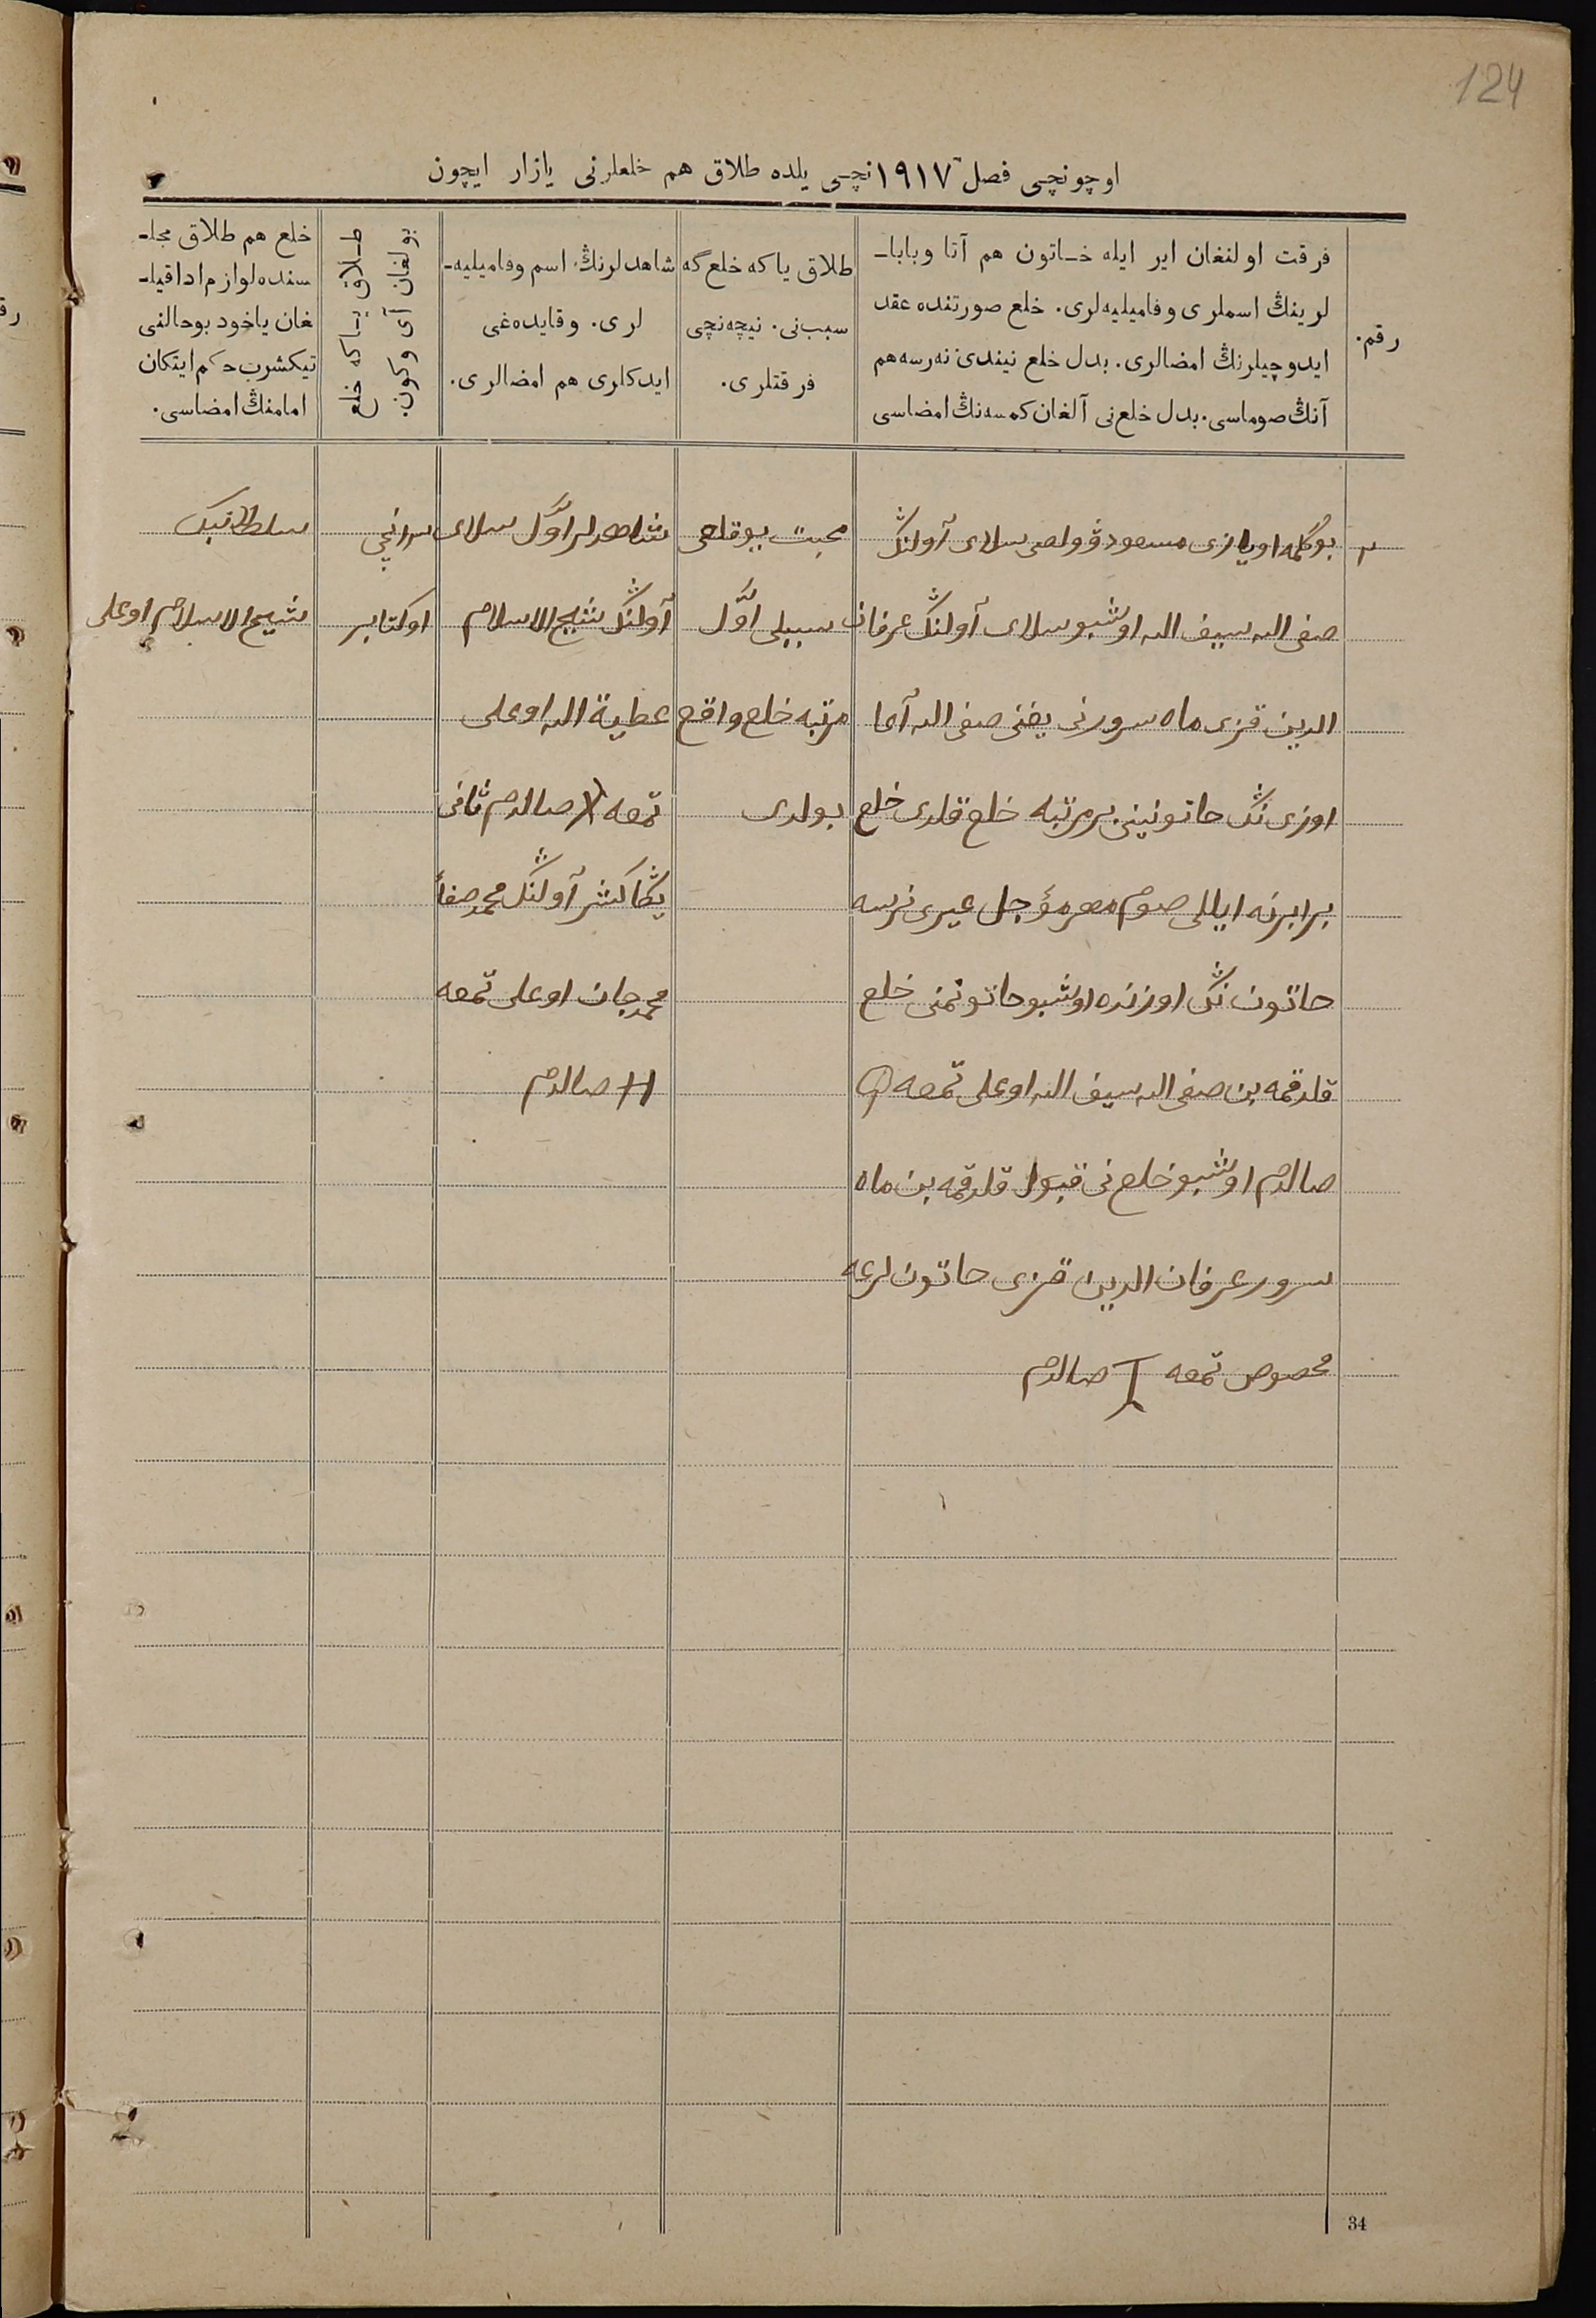 124
اوچونچی فصل ١٩١٧نچی یلده طلاق هم خلعلرنی یازار ایچون
رقم.
فرقت اولنغان ایر ایله خاتون هم آتا وبابا-
لرینڭ اسملری وفامیلیه‌لری. خلع صورتنده عقد
ایدوچیلرنڭ امضالری. بدل خلع نیندی نه‌رسه هم
آنڭ صوماسی. بدل خلع‌نی آلغان کمسه‌نڭ امضاسی
طلاق یا که خلع گه
سبب‌نی. نیچه‌نچی
فرقتلری.
شاهدلرنڭ اسم وفامیلیه-
لری. وقایده‌غی
ایدکلری هم امضالری.
طلاق یاکه خلع
بولغان آی وکون.
خلع هم طلاق مجلـ
سنده لوازم ادا قیلـ
غان یاخود بوحالنی
تیکشرب حکم ایتکان
امامنڭ امضاسی.
٢
بوگلمه اویازی مسعود ڤولصی سلای آولنڭ
صفی الله سیف الله اوشبو سلای آولنڭ عرفان
الدین قزی ماه سرورنی یغنی صفی الله آعا
اوزی نڭ حاتونینی بر مرتبه خلع قلدی خلع
برابرنه ایللی صوم مهر مؤجل عیری نرسه
حاتون نڭ اوزنده اوشبو حاتونمنی خلع
قلدقمه بن صفی الله سیف الله اوعلی تمعه
صالدم اوشبو خلع نی قبول قلدقمه بن ماه
سرور عرفان الدین قزی حاتون لرعه
مخصوص تمعه صالدم
محبت یوقلعی
سببلی اوّل
مرتبه خلع واقع
بولدی
شاهدلر اوّل سلای
آولنڭ شیخ الاسلام
عطیة الله اوعلی
تمعه صالدم ثانی
یڭا کشر آولنڭ محمد صفا
محمد جان اوعلی تمعه
صالدم
اوکتابر
سلطانبک
شیخ الاسلام اوعلی
34